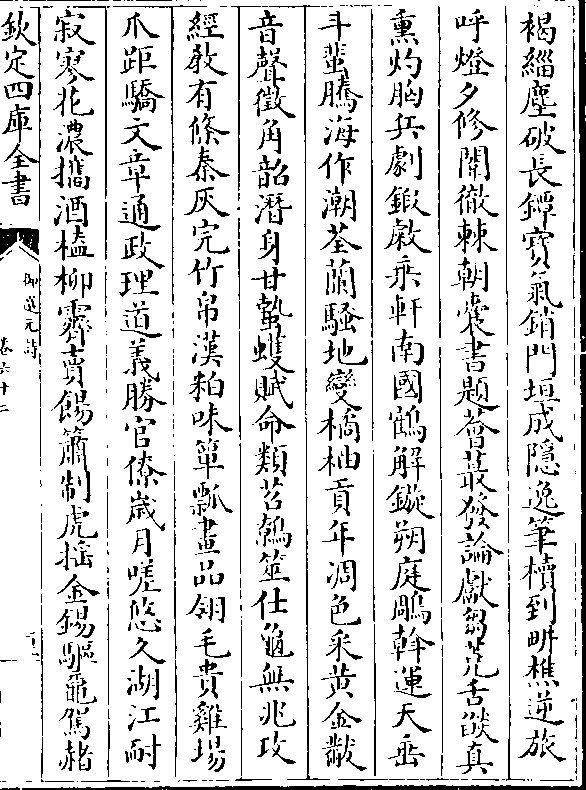 褐緇塵破長鐔寳氣銷門垣成隱逸筆櫝到畊樵逆旅
呼燈夕修閽徹棘朝囊書題薈蕞發論獻芻蕘舌燄真
熏灼胸兵劇鍜敹乘軒南國鶴解鏇朔庭鵰斡運天垂
斗蜚騰海作潮荃蘭騷地變橘柚貢年凋色采黃金黻
音聲徵角韶潛身甘蟄蠖賦命類苕鷦筮仕龜無兆攻
經教有條秦灰完竹帛漢粕味簞瓢畫品翎毛貴雞場
爪距驕文章通政理道義勝官僚歲月嗟悠久湖江耐
寂寥花濃攜酒榼柳霽賣餳簫制虎揺金錫驅鼉駕赭
欽定四庫全書
御選元詩
卷六十二